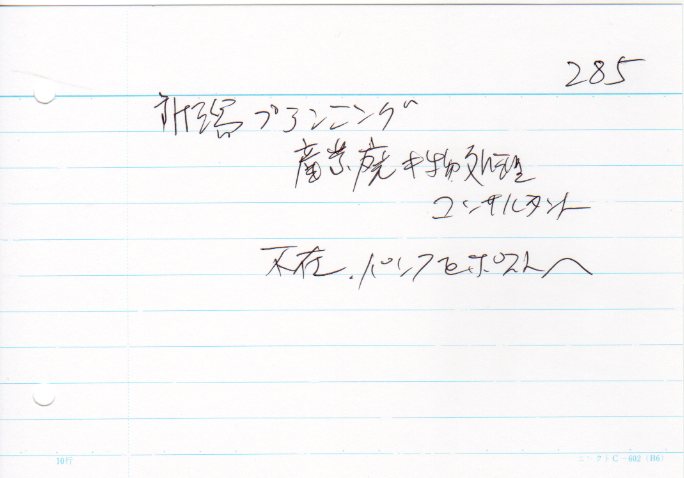 285
新潟プランニング
産業廃キ物処理
コンサルタント
不在、パンフをポストへ
10行
コレクトC－602（B6）